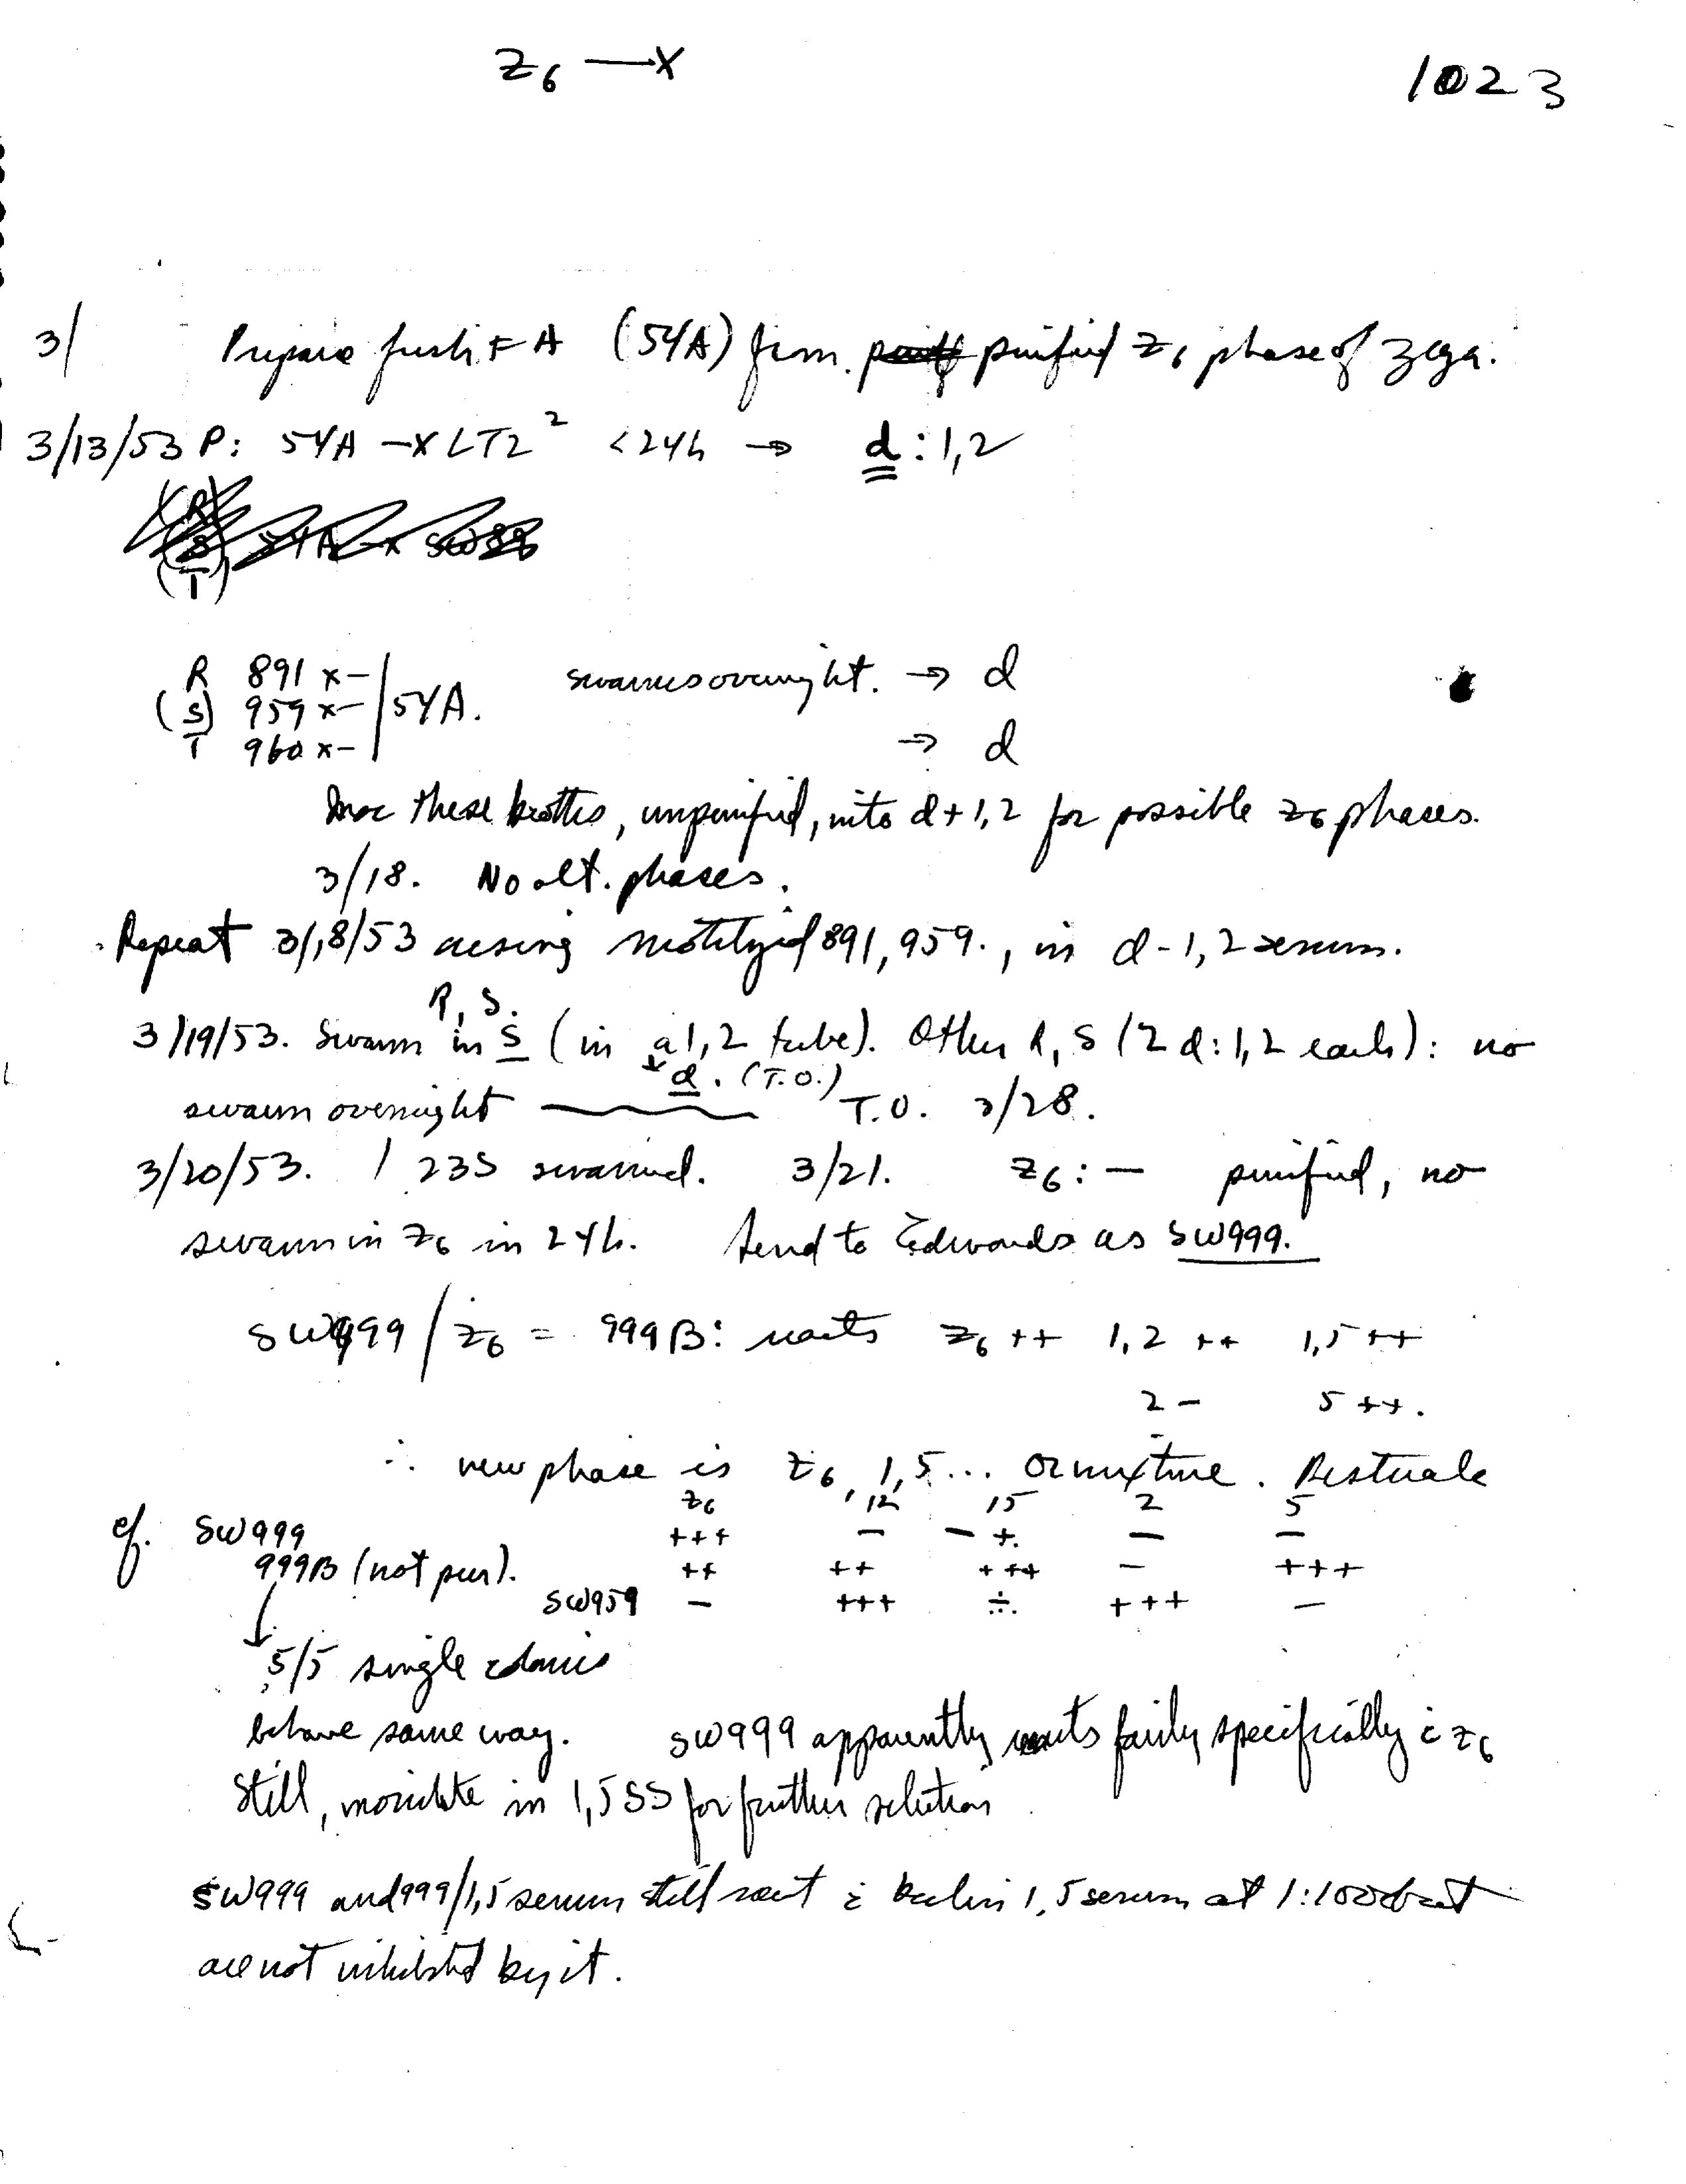 Z6 —x
1023
3/ Prepare fresh FA (54A) from purified z6 phase of zega.
3/13/53 P: 54A —x LT2² <24h → d : 1,2
(R)
(S) 54A —x SW
(T)
R 891 x—
(S) 959 x— | 54A. swarms overnight. → d
T 960 x— → d
Inoc these broths, unpurified, into d+1,2 for possible z6 phases.
3/18. No alt. phases.
Repeat 3/18/53 using 891, 959., in d-1,2 serum.
R, S.
3/19/53. Swarm in S (in a 1,2 tube). Other R, S (2 d:1,2 each): no
d. (T.O.)
swarm overnight — T.O. 3/28.
3/20/53. 1 23S swarmed. 3/21. z6 : — purified, no
swarm in z6 in 24h. Send to Edwards as SW999.
SW999 / z6 = 999B: reacts z6 ++ 1,2 ++ 1,5 ++
2 — 5 ++.
∴ new phase is z6, 1,5... or mixture.
z6 12 15 2 5
cf. SW999 +++ — — +. — —
999B (not pur). ++ ++ +++ — +++
SW959 — +++ ÷. +++ —
↓
5/5 single colonies
behave same way. SW999 apparently reacts fairly specifically c̄ z6
Still, inoculate in 1,5 SS for further selection
SW999 and 999/1,5 serum still react c̄ 1,5 serum at 1:1000 but
are not inhibited by it.